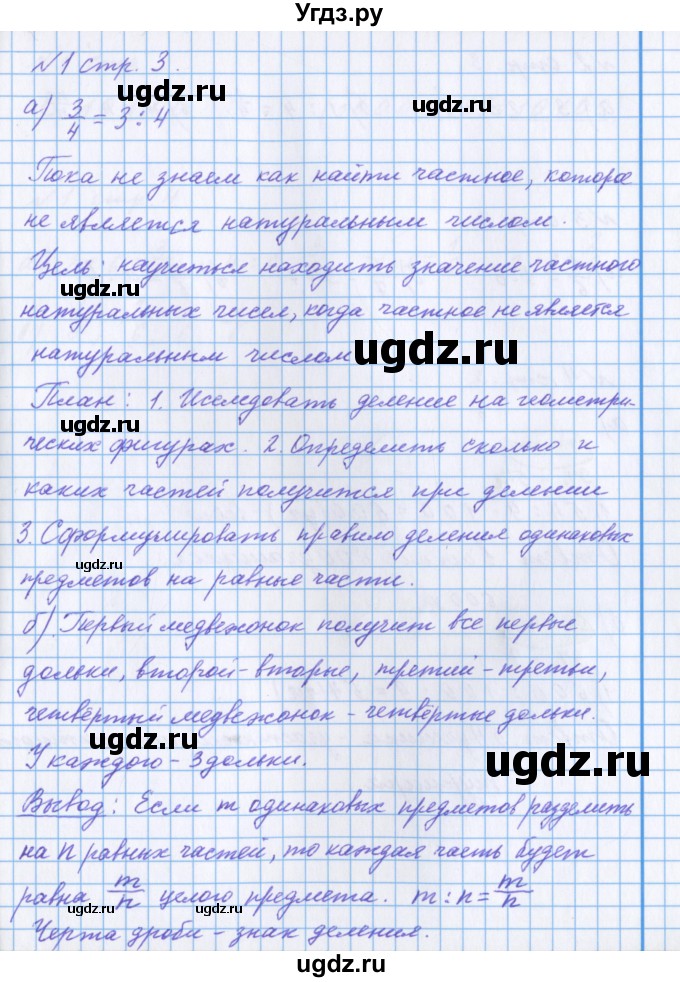 Угдз.ру
№1 стр. 3.
ugdz.ru ugdz.ru
а) 3/4 = 3 : 4
Пока не знаем как найти частное, которое
не является натуральным числом.
Цель: научиться находить значение частного
ugdz.ru
натуральных чисел, когда частное не является
натуральным числом
ugdz.ru
План: 1. Исследовать деление на геометри-
ugdz.ru
ческих фигурах. 2. Определить сколько и
каких частей получится при делении
3. Сформулировать правило деления одинаковых
предметов на равные части.
б) Первый медвежонок получит все первые
дольки, второй - вторые, третий - третьи,
четвёртый медвежонок - четвёртые дольки.
ugdz.ru
У каждого - 3 дольки.
ugdz.ru
Вывод: Если m одинаковых предметов разделить
на n равных частей, то каждая часть будет
равна m/n целого предмета. m : n = m/n
ugdz.ru ugdz.ru
Черта дроби - знак деления.
ugdz.ru